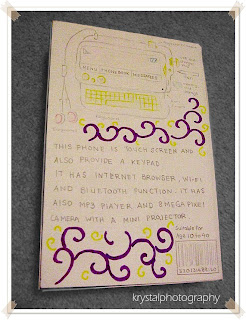 THIS PHONE IS TOUCH SCREEN AND
ALSO PROVIDE A KEYPAD.
IT HAS INTERNET BROWSER, WI-FI
AND BLUETOOTH FUNCTION. IT HAS
ALSO MP3 PLAYER AND 8 MEGA PIXEL
CAMERA WITH A MINI PROJECTOR
Suitable for
Age 10 to 40
krystalphotography